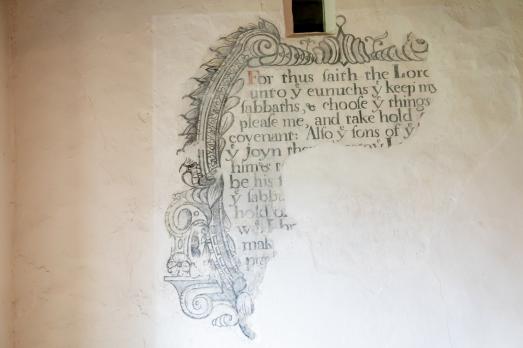 For thus saith the Lord
unto yͤ eunuchs yͭ keep my
sabbaths, & choose yͤ things
please me, and take hold
covenant: Also yͤ sons of yͤ
yͭ joyn the
him
be his
yͤ sab
hold o
w
mak